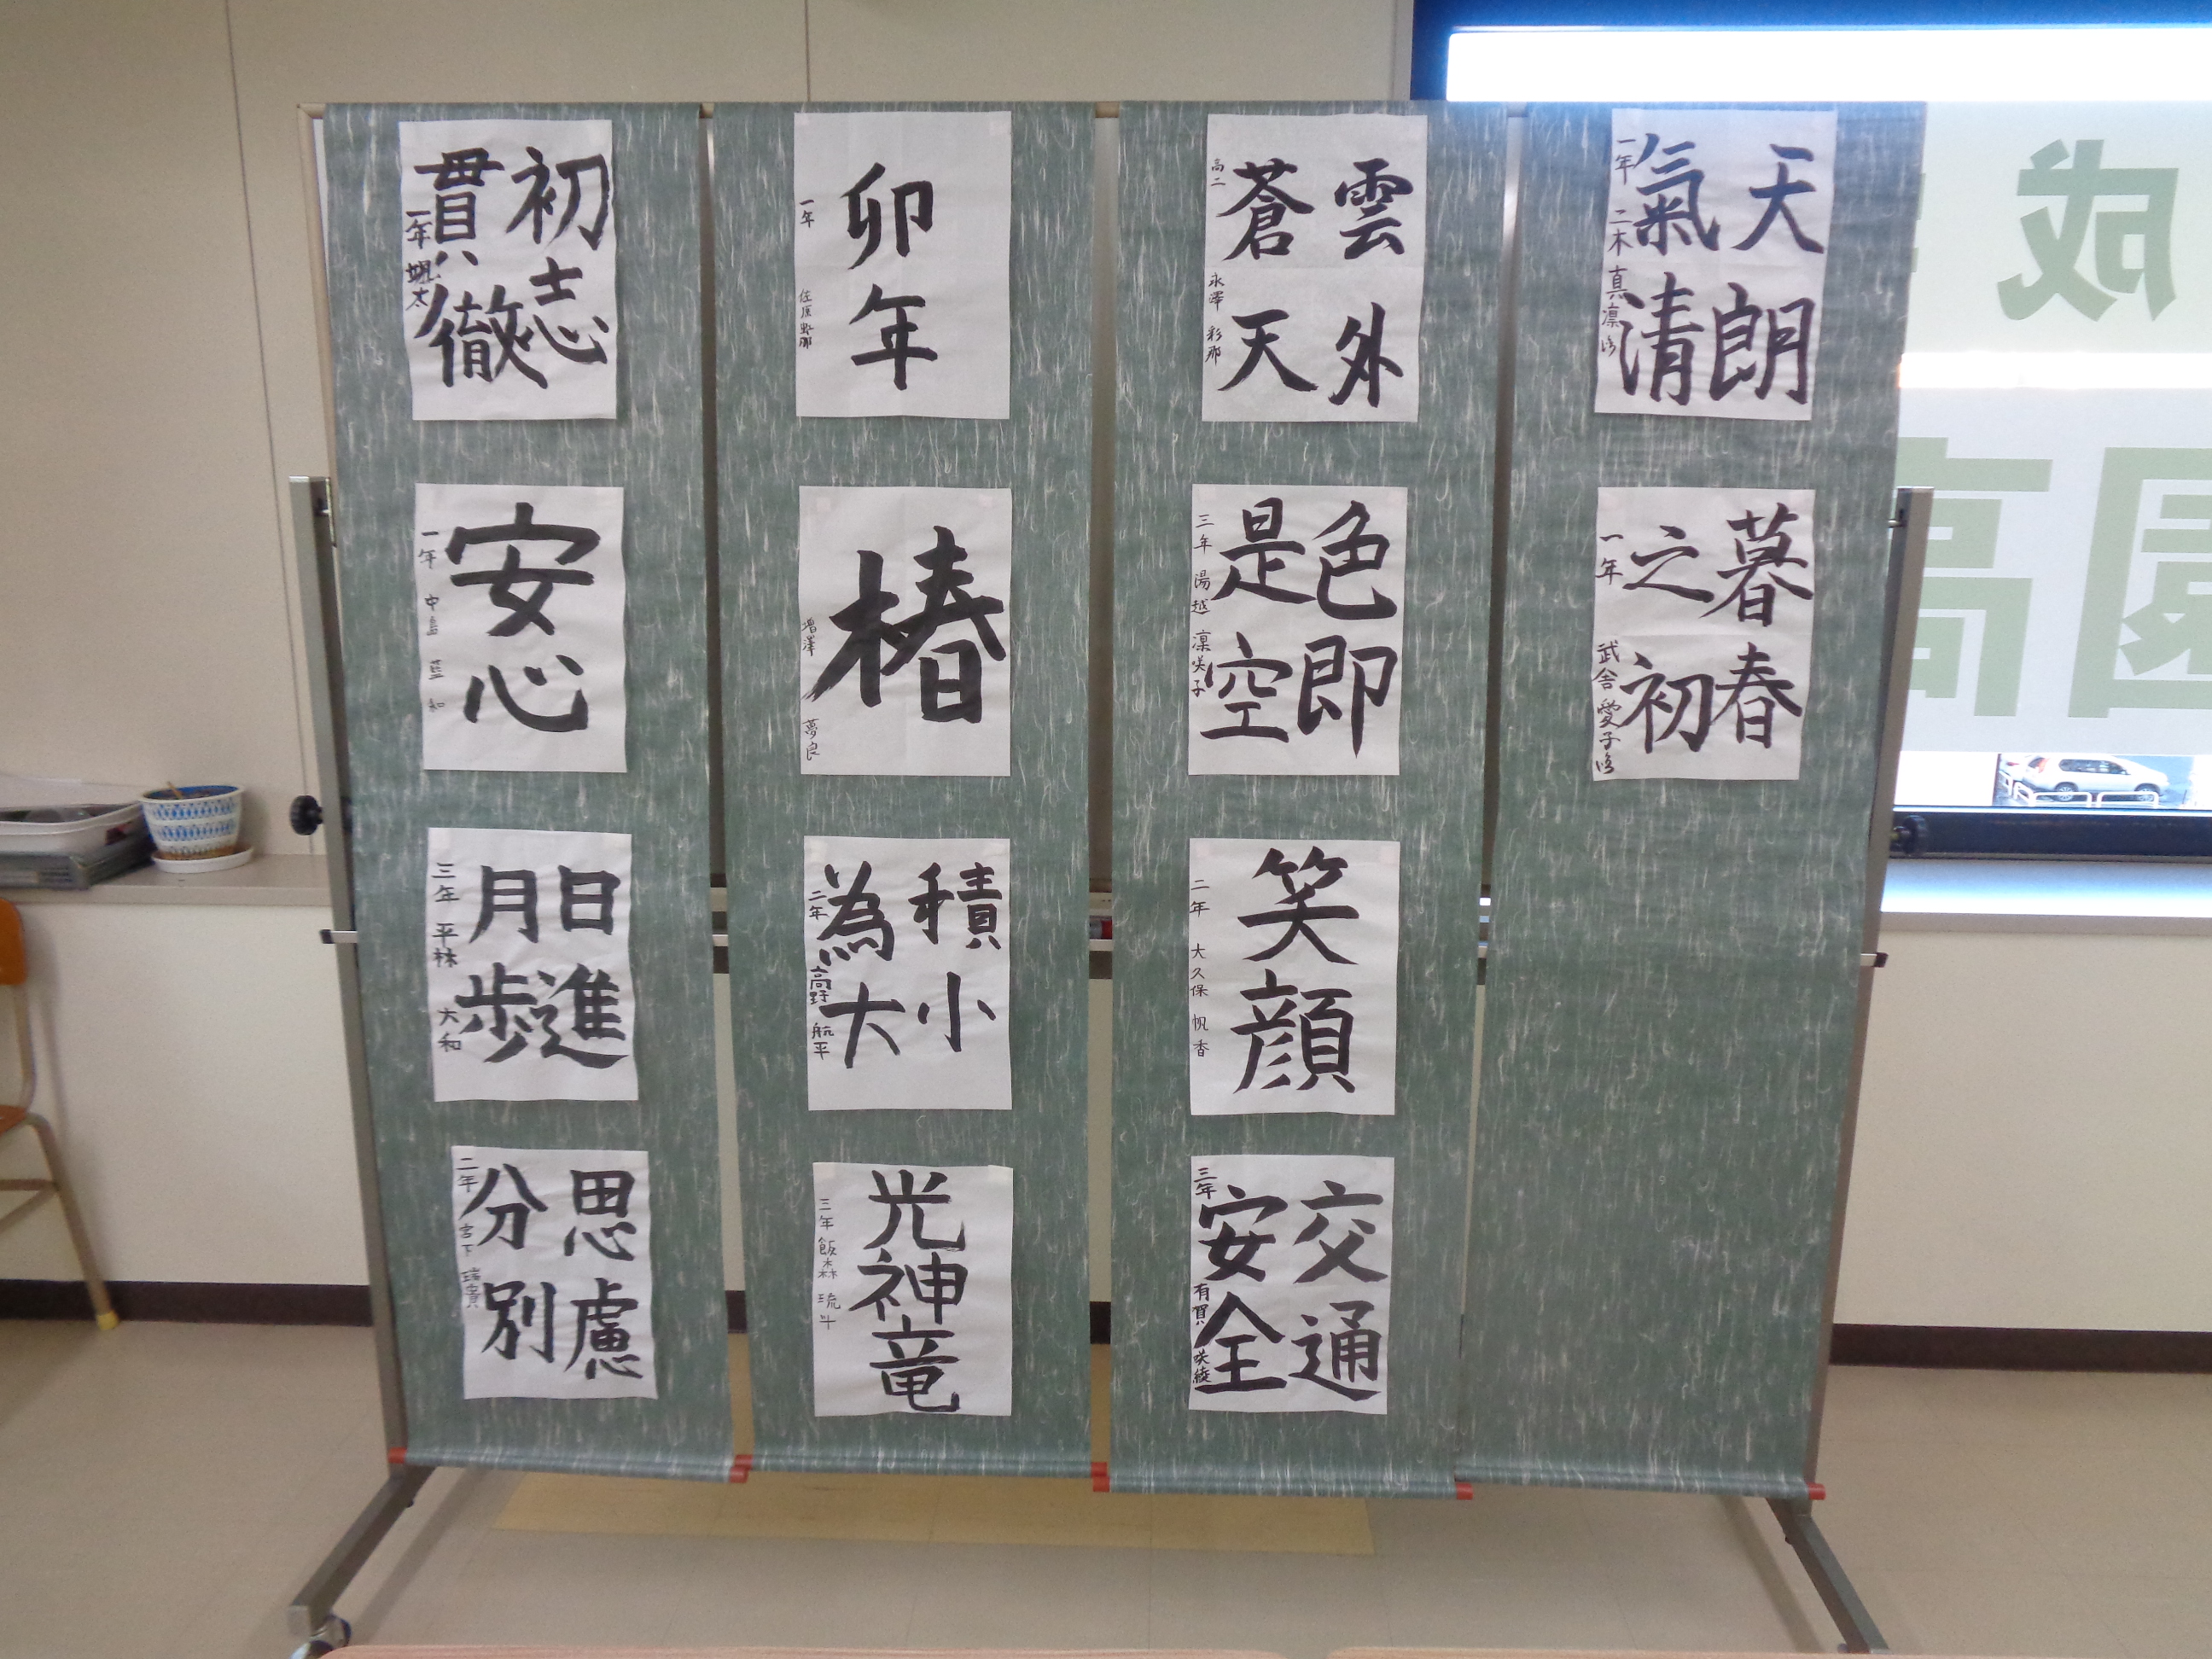 天朗
氣清
一年 二木 真凛
暮春
之初
一年 武舎 愛子
雲外
蒼天
高二 永澤 彩那
色即
是空
三年 湯越 凛咲子
笑顔
二年 大久保 帆香
交通
安全
三年 有賀 咲綾
卯年
一年
椿
増澤 夢良
積小
為大
二年 高野 航平
光神竜
三年 飯森 琉斗
初志
貫徹
一年 颯太
安心
一年 中島 藍和
日進
月歩
三年 平林 大和
思慮
分別
二年 宮下
成
園高